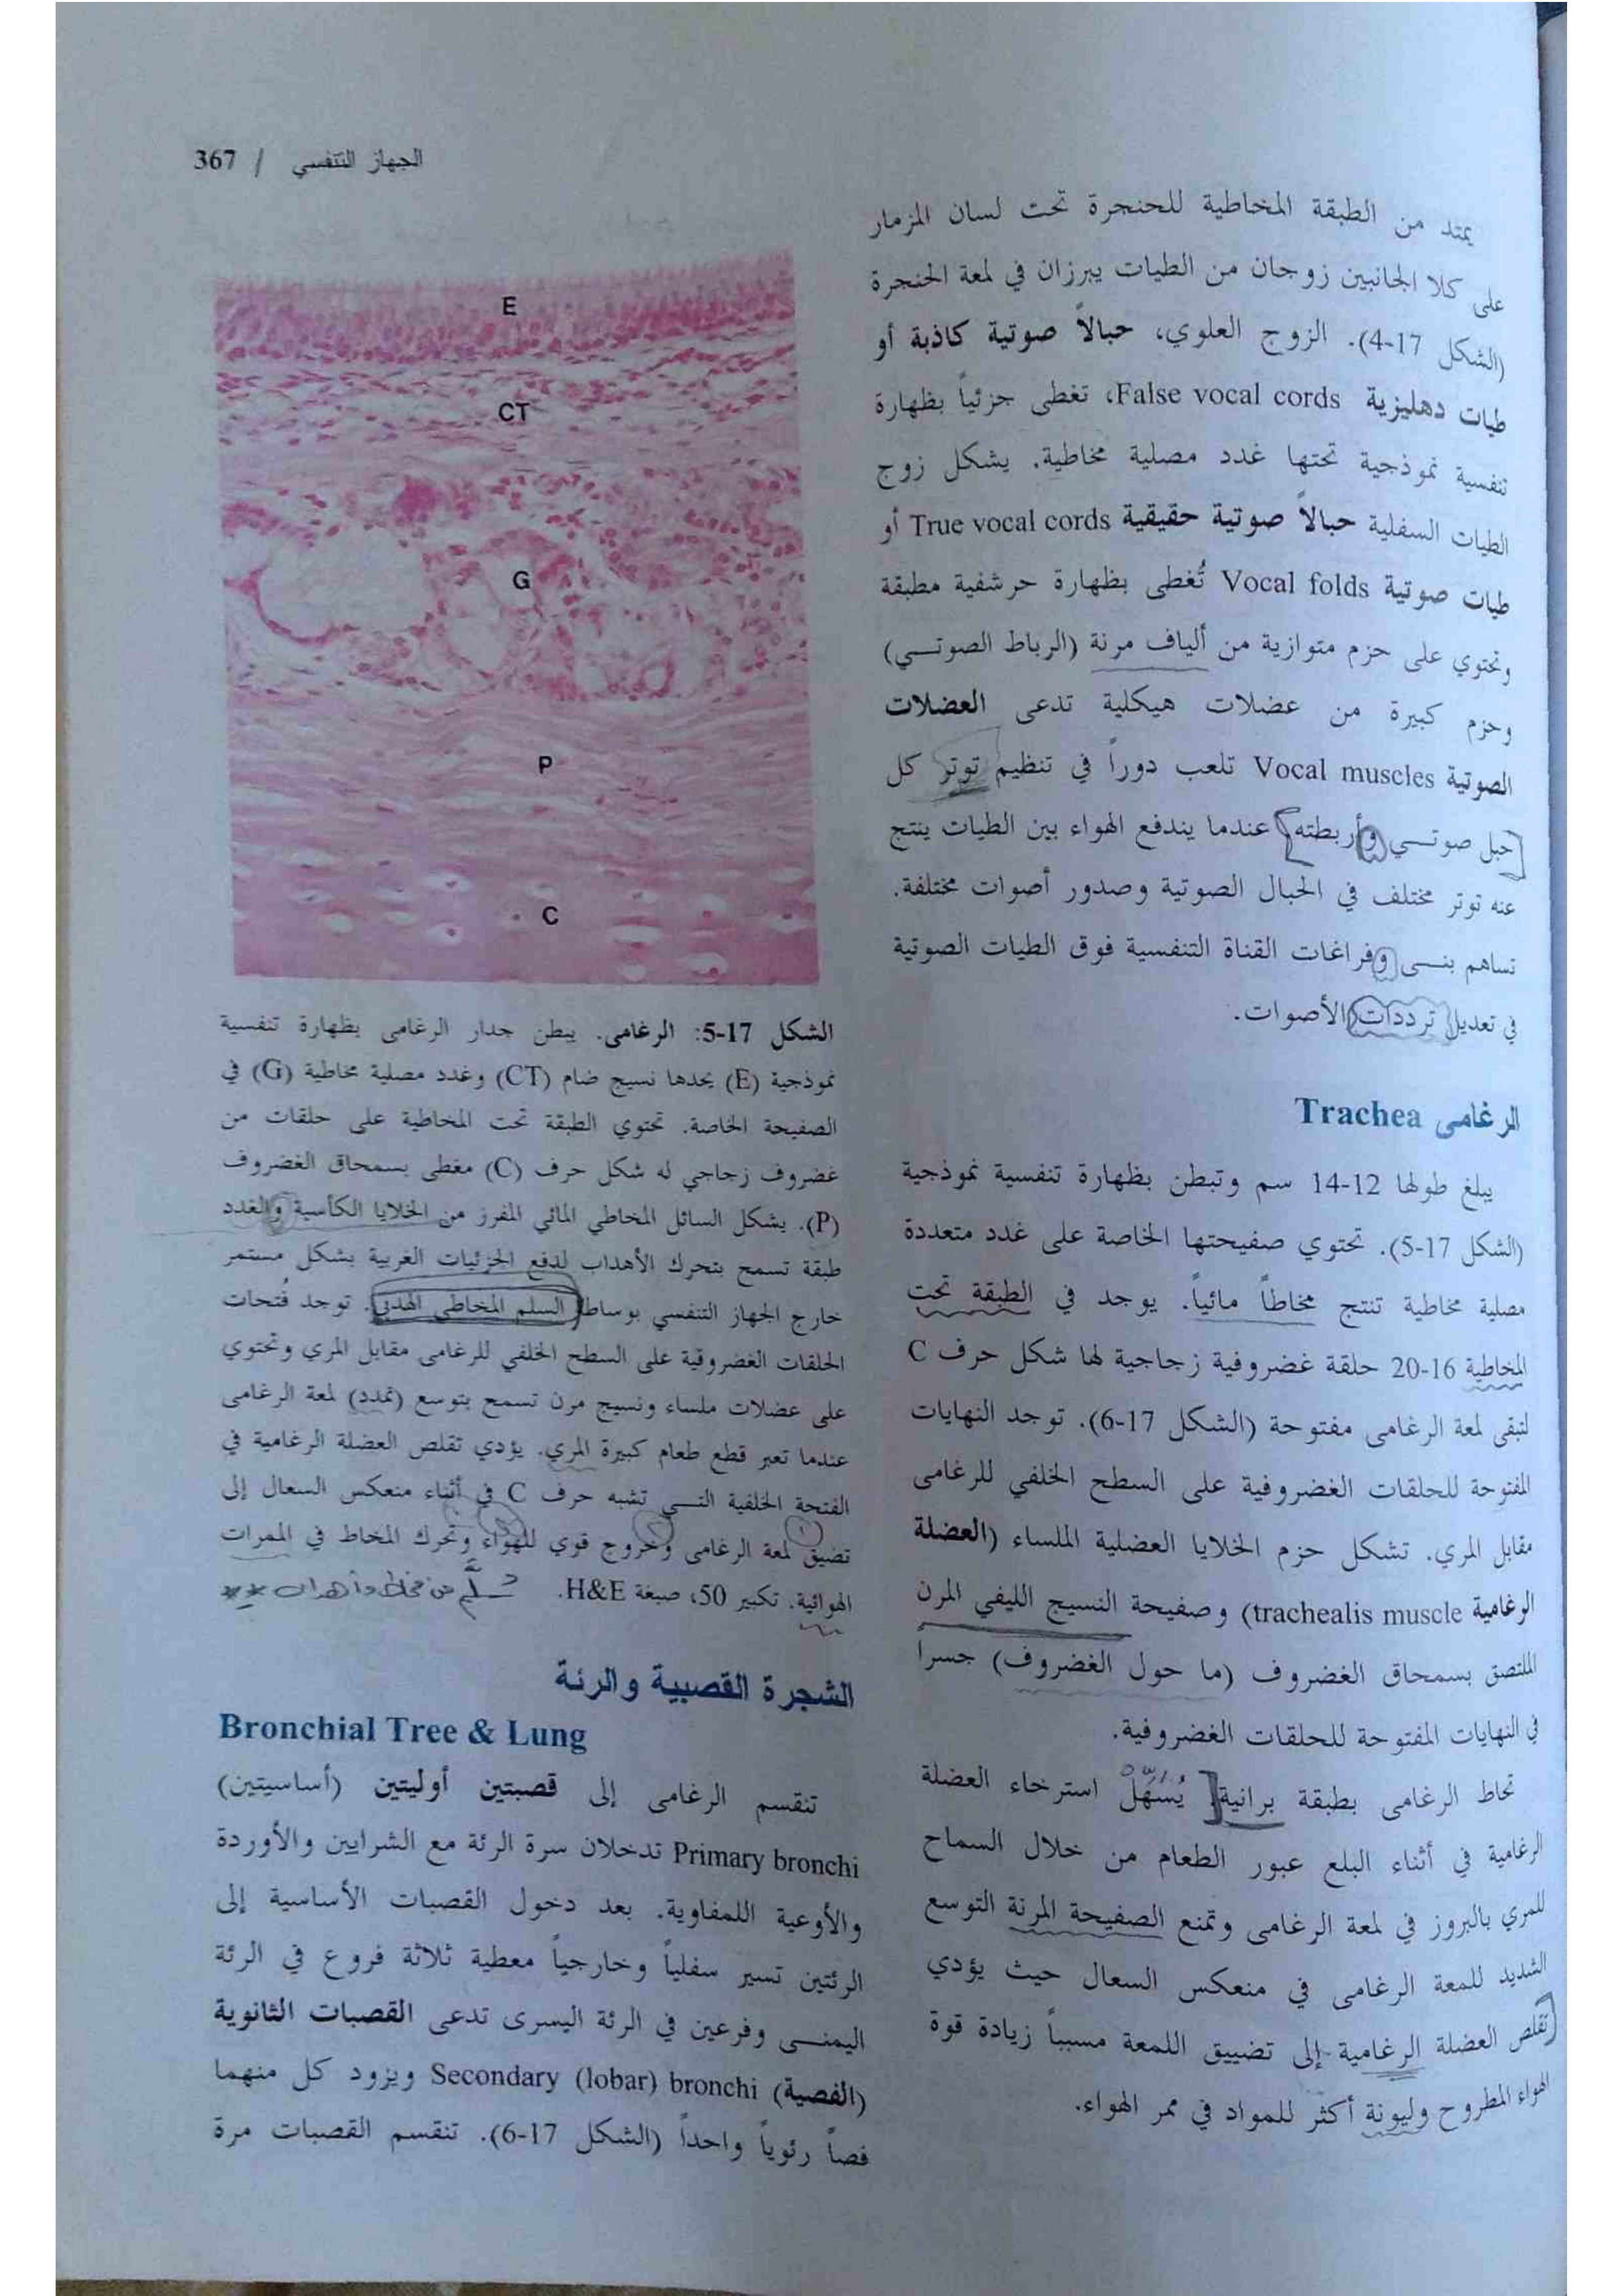 الجهاز التنفسي / 367
يمتد من الطبقة المخاطية للحنجرة تحت لسان المزمار
على كلا الجانبين زوجان من الطيات يبرزان في لمعة الحنجرة
(الشكل 17-4). الزوج العلوي، حبالاً صوتية كاذبة أو
طيات دهليزية False vocal cords، تغطى جزئياً بظهارة
تنفسية نموذجية تحتها غدد مصلية مخاطية. يشكل زوج
الطيات السفلية حبالاً صوتية حقيقية True vocal cords أو
طيات صوتية Vocal folds تُغطى بظهارة حرشفية مطبقة
وتحتوي على حزم متوازية من ألياف مرنة (الرباط الصوتـــي)
وحزم كبيرة من عضلات هيكلية تدعى العضلات
الصوتية Vocal muscles تلعب دوراً في تنظيم توتر كل
حبل صوتـــي وأربطته عندما يندفع الهواء بين الطيات ينتج
عنه توتر مختلف في الحبال الصوتية وصدور أصوات مختلفة.
تساهم بنـــى وفراغات القناة التنفسية فوق الطيات الصوتية
في تعديل ترددات الأصوات.
الرغامى Trachea
يبلغ طولها 12-14 سم وتبطن بظهارة تنفسية نموذجية
(الشكل 17-5). تحتوي صفيحتها الخاصة على غدد متعددة
مصلية مخاطية تنتج مخاطاً مائياً. يوجد في الطبقة تحت
المخاطية 16-20 حلقة غضروفية زجاجية لها شكل حرف C
لتبقى لمعة الرغامى مفتوحة (الشكل 17-6). توجد النهايات
المفتوحة للحلقات الغضروفية على السطح الخلفي للرغامى
مقابل المري. تشكل حزم الخلايا العضلية الملساء (العضلة
الرغامية trachealis muscle) وصفيحة النسيج الليفي المرن
الملتصق بسمحاق الغضروف (ما حول الغضروف) جسراً
في النهايات المفتوحة للحلقات الغضروفية.
تحاط الرغامى بطبقة برانية يُسَهِّلُ استرخاء العضلة
الرغامية في أثناء البلع عبور الطعام من خلال السماح
للمري بالبروز في لمعة الرغامى وتمنع الصفيحة المرنة التوسع
الشديد للمعة الرغامى في منعكس السعال حيث يؤدي
تقلص العضلة الرغامية إلى تضييق اللمعة مسبباً زيادة قوة
الهواء المطروح وليونة أكثر للمواد في ممر الهواء.
E
CT
G
P
C
الشكل 17-5: الرغامى. يبطن جدار الرغامى بظهارة تنفسية
نموذجية (E) يحدها نسيج ضام (CT) وغدد مصلية مخاطية (G) في
الصفيحة الخاصة. تحتوي الطبقة تحت المخاطية على حلقات من
غضروف زجاجي له شكل حرف (C) مغطى بسمحاق الغضروف
(P). يشكل السائل المخاطي المائي المفرز من الخلايا الكأسية والغدد
طبقة تسمح بتحرك الأهداب لدفع الجزئيات الغريبة بشكل مستمر
خارج الجهاز التنفسي بوساطة السلم المخاطي الهدبي. توجد فُتحات
الحلقات الغضروفية على السطح الخلفي للرغامى مقابل المري وتحتوي
على عضلات ملساء ونسيج مرن تسمح بتوسع (تمدد) لمعة الرغامى
عندما تعبر قطع طعام كبيرة المري. يؤدي تقلص العضلة الرغامية في
الفتحة الخلفية التـــي تشبه حرف C في أثناء منعكس السعال إلى
تضيق لمعة الرغامى وخروج قوي للهواء وتحرك المخاط في الممرات
الهوائية. تكبير 50، صبغة H&E. سلّم من مخاط وأهداب
الشجرة القصبية والرئة
Bronchial Tree & Lung
تنقسم الرغامى إلى قصبتين أوليتين (أساسيتين)
Primary bronchi تدخلان سرة الرئة مع الشرايين والأوردة
والأوعية اللمفاوية. بعد دخول القصبات الأساسية إلى
الرئتين تسير سفلياً وخارجياً معطية ثلاثة فروع في الرئة
اليمنـــى وفرعين في الرئة اليسرى تدعى القصبات الثانوية
(الفصية) Secondary (lobar) bronchi ويزود كل منهما
فصاً رئوياً واحداً (الشكل 17-6). تنقسم القصبات مرة